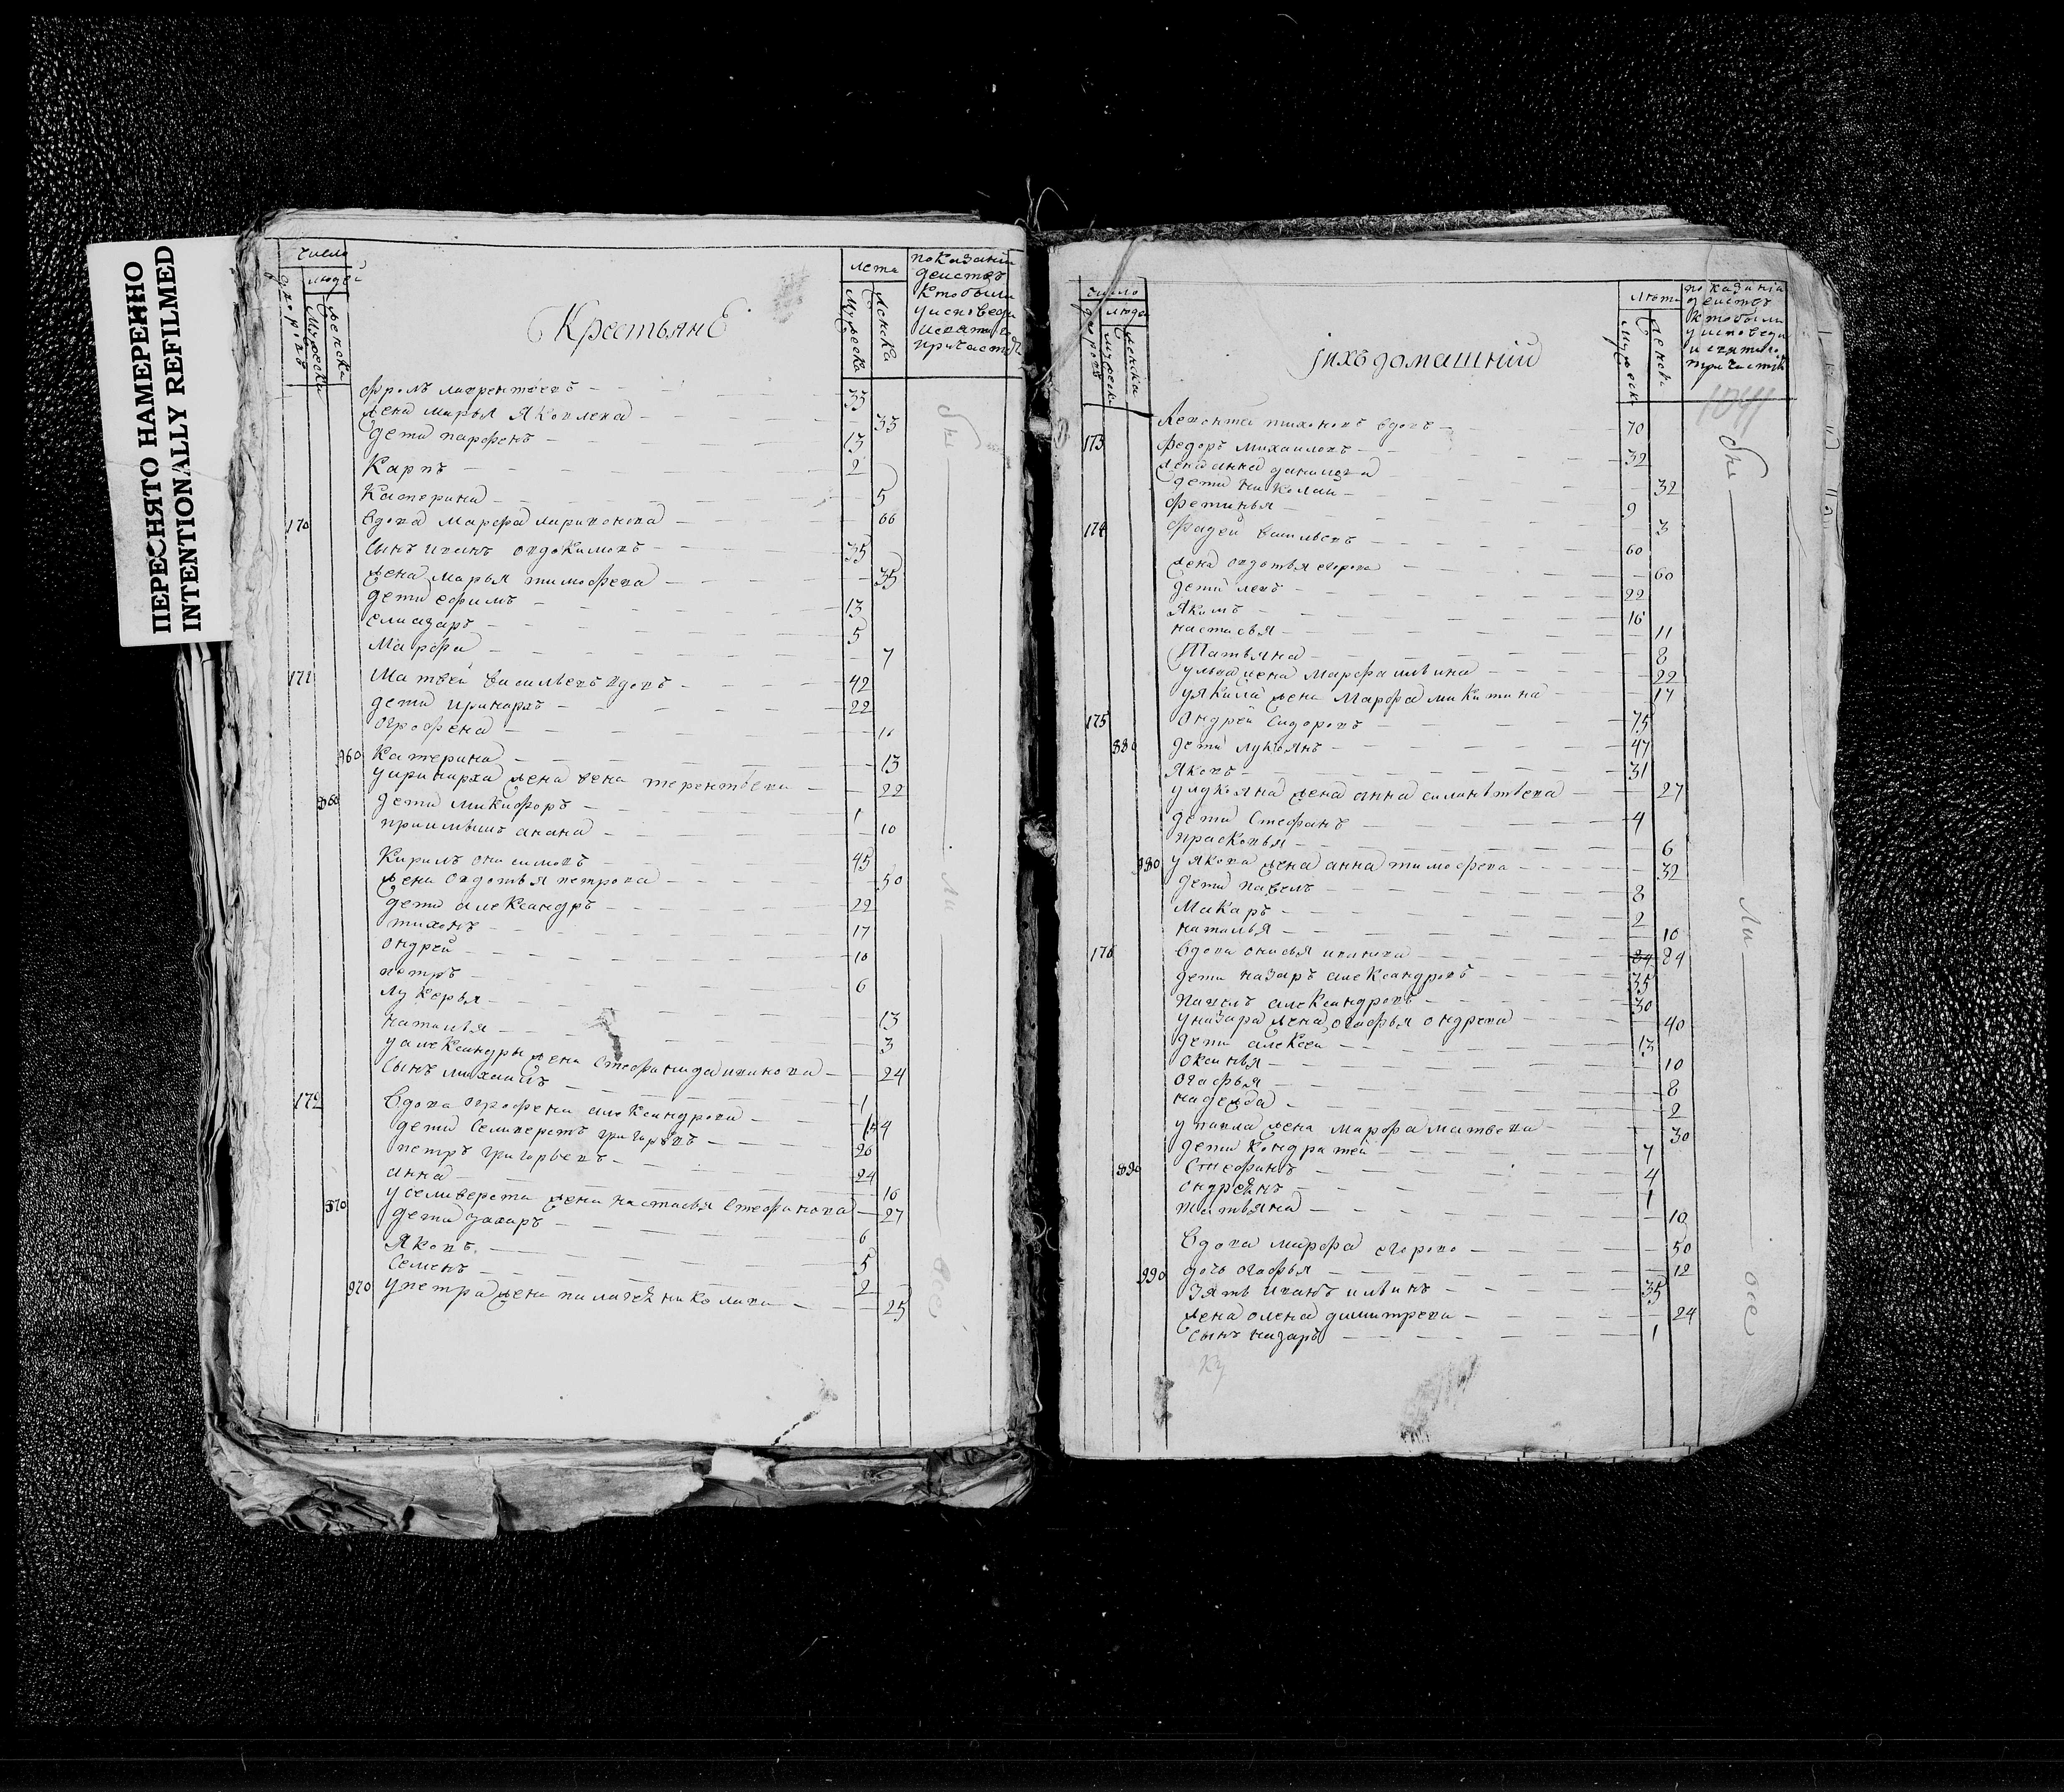 ПЕРЕСНЯТО НАМЕРЕННО
INTENTIONALLY REFILMED
число
людей
дворовъ
Мужеска
женска
КрестьянЕ
лета
Мужеска
женска
показаніи
действъ
кто были
у исповеди
и святаго
причастія
фролъ лаврентьевъ 33
жена марья Яковлева 33
дети парфенъ 13
Карпъ 2
Катерина 5
170 вдова марфа 66
сынъ иванъ овдокимовъ 35
жена марья тимофева 35
дети ефимъ 13
елиазаръ 5
Марфа 7
171 Матвей васильевъ вдовъ 42
дети иринархъ 22
огрофена 11
960 Катерина 13
у иринарха жена терентьева 22
860 дети микифоръ 1
анана 10
Кирилъ онисимовъ 45
жена овдотья петрова 50
дети александръ 22
тихонъ 17
ондрей 10
петръ 6
лукерья 13
наталья 3
у александры жена стефанида иванова 24
сынъ михаилъ 1
172 вдова огрофена александрова 44
дети селиверстъ григорьевъ 26
петръ григорьевъ 24
анна 16
у селиверста жена настасья стефанова 27
870 дети захаръ 6
Яковъ 5
семенъ 2
970 у петра жена пилагея николаева 25
число
людей
дворовъ
мужеск
женска
іихъ домашниі
лѣта
мужеск
женск
показаніи
действъ
кто были
у исповеди
и святаго
причастія
1041
тихоновъ вдовъ 70
173 федоръ михаиловъ 32
жена анна данилова 32
дети николай 9
фетинья 3
174 фадей васильевъ 60
жена овдотья егорова 60
дети левъ 22
Якимъ 16
настасья 11
Татьяна 8
у льва жена марфа ильина 22
у якима жена марфа микитина 17
175 ондрей сидоровъ 75
880 дети лукоянъ 47
Яковъ 31
у лукояна жена анна силантьева 27
дети стефанъ 4
прасковья 6
980 у якова жена анна тимофева 32
дети павелъ 8
Макаръ 2
наталья 10
176 вдова онисья иванова 84 84
дети назаръ александровъ 35
павелъ александровъ 30
у назара жена огафья ондрева 40
дети алексей 13
оксинья 10
огафья 8
надежда 2
у павла жена марфа матвева 30
дети кондратей 7
890 стефанъ 4
ондреянъ 1
татьяна 10
вдова марфа егорова 50
990 дочь огафья 12
зять иванъ ильинъ 35
жена олена димитрева 24
сынъ назаръ 1